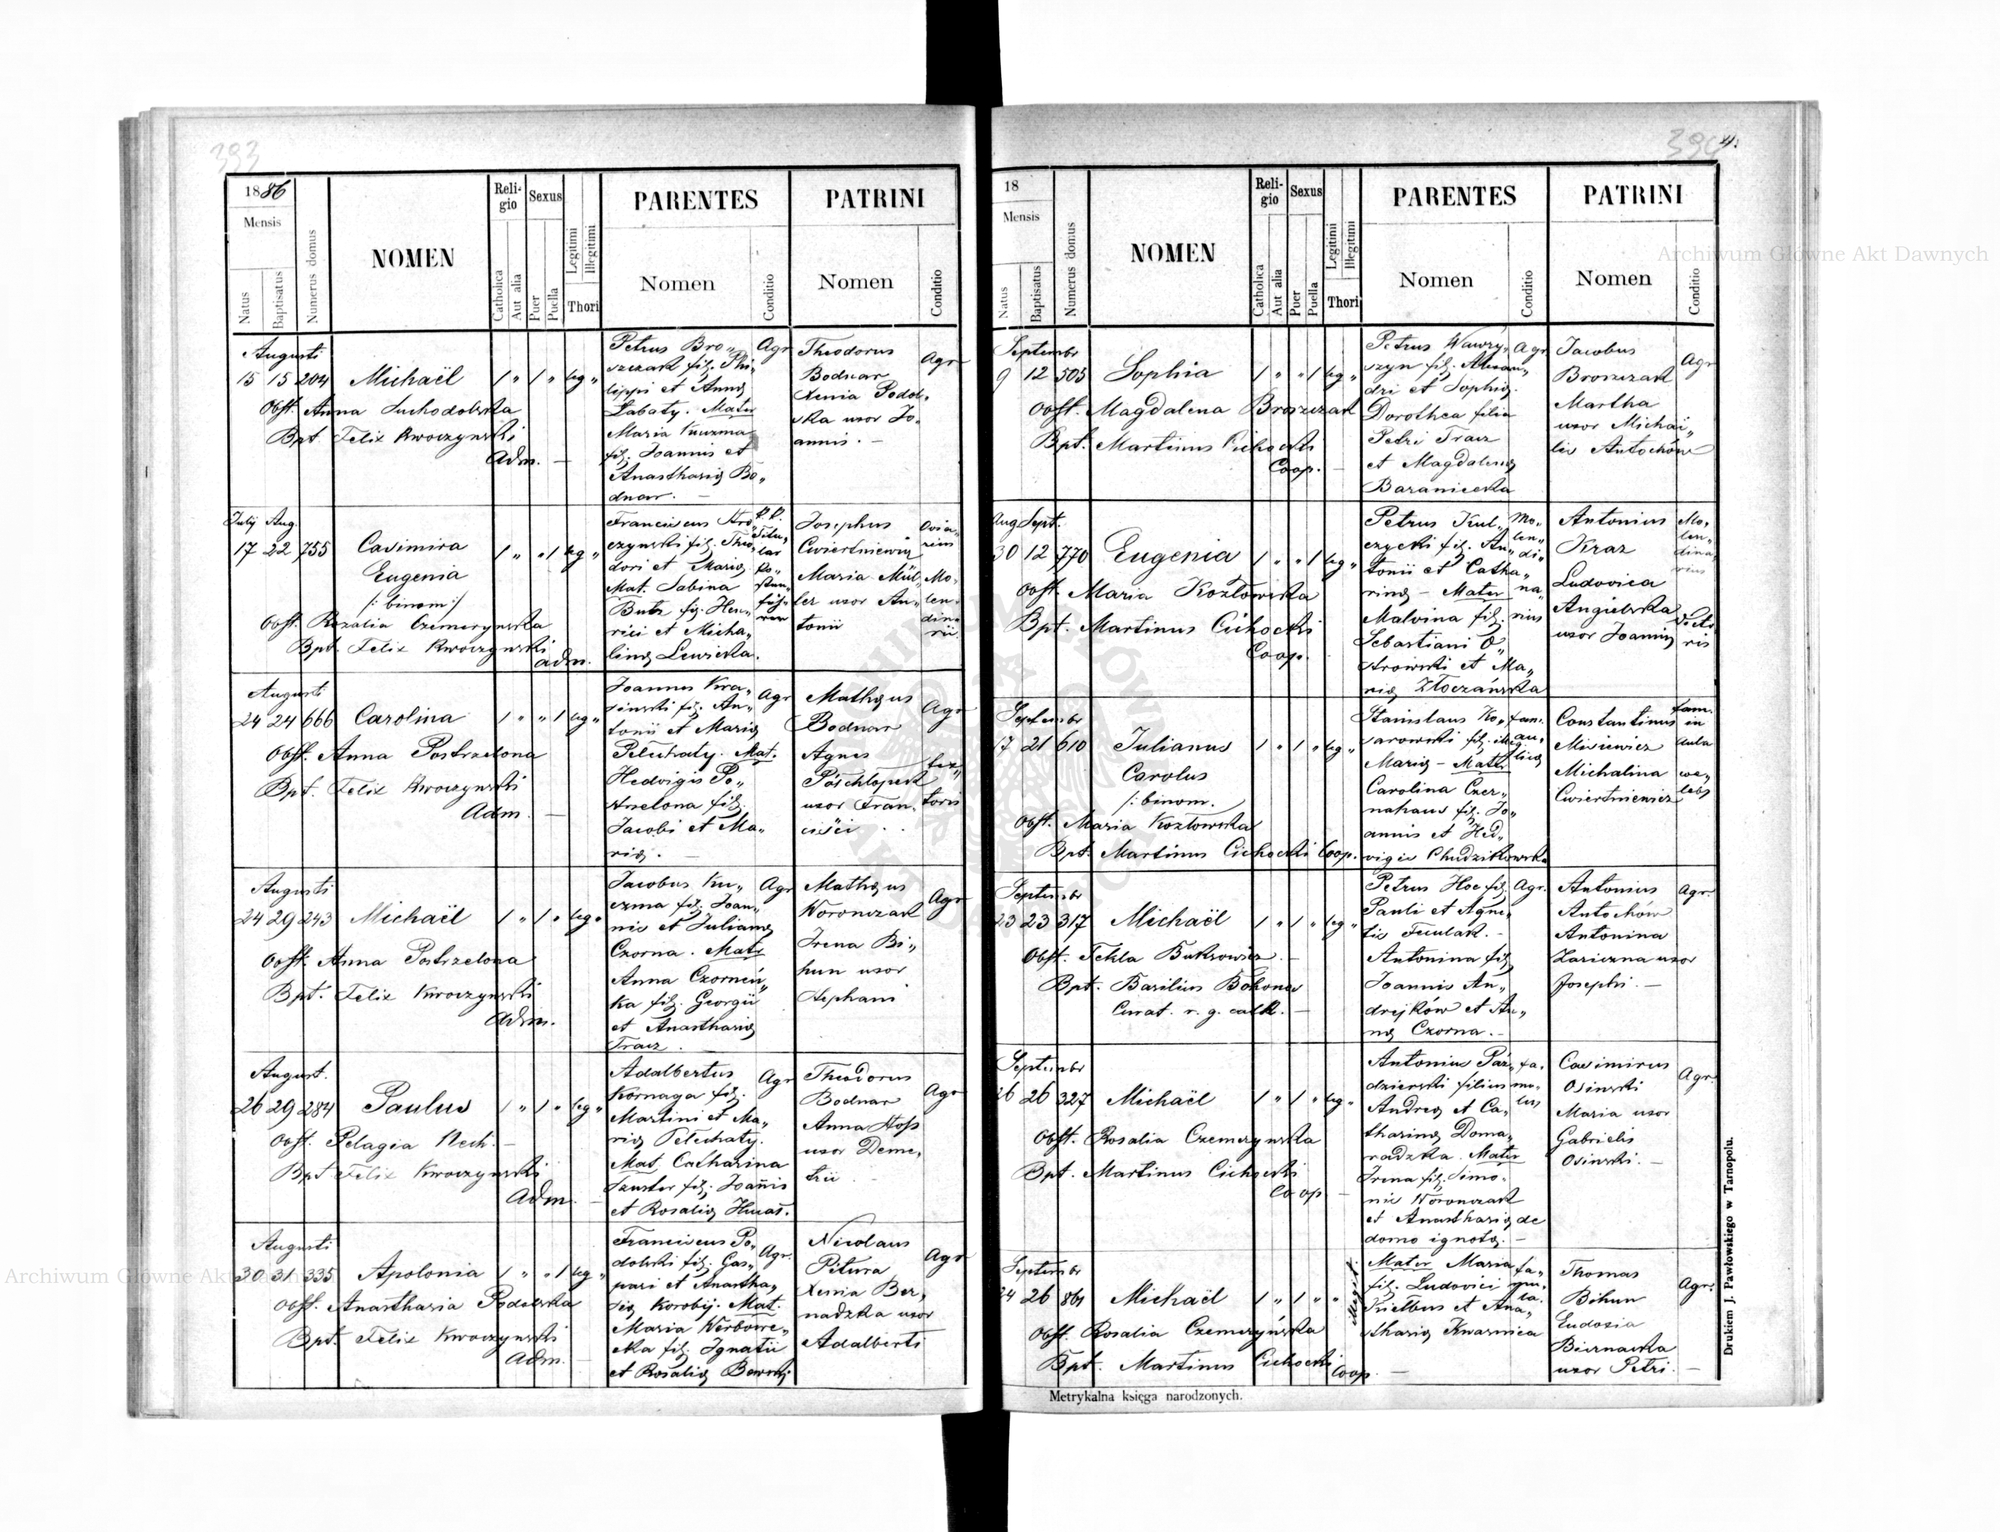 393
1886
Mensis
Natus
Baptisatus
Numerus domus
NOMEN
Reli-
gio
Catholica
Aut alia
Sexus
Puer
Puella
Legitimi
Illegitimi
Thori
PARENTES
Nomen
Conditio
PATRINI
Nomen
Conditio
Augusti
15 15 204 Michaël 1 " 1 " leg "
Obst. Anna Suchodolska
Bpt. Felix Kwoczynski
Adm. —
Petrus Bro-
szczak fil. Phi-
lippi et Anna
Labaty. Mater
Maria Kuzma
fil. Joannis et
Anasthasia Bo-
dnar. —
Agr
Theodorus
Bodnar
Xenia Podol-
ska uxor Jo-
annis. —
Agr
Julij Aug.
17 22 755 Casimira 1 " " 1 leg "
Eugenia
/: binom :/
Obst. Rozalia Czemerynska
Bpt. Felix Kwoczynski
Adm.
Franciscus
czynski fil. Theo-
dori et Maria
Mat. Sabina
Butz fil. Hen-
rici et Micha-
lina Lewicka.
Josephus
Cwiertniewicz
Maria Mül-
ler uxor An-
tonii
Mo-
len-
dina-
rii
Augusti
24 24 666 Carolina 1 " " 1 leg "
Obst. Anna Postrzelona
Bpt. Felix Kwoczynski
Adm. —
Joannes Kra-
sinski fil. An-
tonii et Maria
Pelechaty. Mat.
Hedvigis Po-
strzelona fil.
Jacobi et Ma-
ria. —
Agr
Matheus
Bodnar
Agnes
uxor Fran-
cisci
Agr
tex-
toris
Augusti
24 29 243 Michaël 1 " 1 " leg "
Obst. Anna Postrzelona
Bpt. Felix Kwoczynski
Adm.
Jacobus Ku-
czma fil. Joan-
nis et Juliana
Czorna. Mater
Anna Czorneń-
ka fil. Georgii
et Anasthasia
Tracz.
Agr
Matheus
Woronczak
Irena Bi-
hun uxor
Stephani
Agr
August.
26 29 284 Paulus 1 " 1 " leg "
Obst. Pelagia Nech. —
Bpt Felix Kwoczynski
Adm. —
Adalbertus
Kornaga fil.
Martini et Ma-
ria Pelechaty.
Mat. Catharina
Szuster fil. Joannis
et Rosalia
Agr
Theodorus
Bodnar
Anna Hoss
uxor Deme-
trii
Agr
Augusti
30 31 335 Apolonia 1 " " 1 leg "
Obst. Anasthasia Podolska
Bpt. Felix Kwoczynski
Adm. —
Franciscus Po-
dolski fil. Gas-
pari et Anastha-
sia Korobij. Mat.
Maria Werbowe-
cka fil. Ignatii
et Rosalia
Agr.
Nicolaus
Pitura
Xenia Ber-
nadzka uxor
Adalberti
Agr
394 4.
18
Mensis
Natus
Baptisatus
Numerus domus
NOMEN
Reli-
gio
Catholica
Aut alia
Sexus
Puer
Puella
Legitimi
Illegitimi
Thori
PARENTES
Nomen
Conditio
PATRINI
Nomen
Conditio
Septembr
9 12 505 Sophia 1 " " 1 leg "
Obst. Magdalena Broszczak
Bpt. Martinus Cichocki
Coop. —
Petrus Wawry-
szyn fil. Alexan-
dri et Sophia
Dorothea filia
Petri Tracz
et Magdalena
Baraniecka
Agr
Jacobus
Broszczak
Martha
uxor Michaë-
lis Antochów
Agr
Aug Sept.
30 12 770 Eugenia 1 " " 1 leg "
Obst. Maria Kozłowska
Bpt. Martinus Cichocki
Coop.
Petrus Kul-
czycki fil. An-
tonii et Catha-
rina — Mater
Malvina fil.
Sebastiani O-
strowski et Ma-
ria Złoczańska
Mo-
len-
di-
na-
rius
Antonius
Kraz
Ludovica
Angielska
uxor Joannis
Mo-
len-
dina-
rius
Septembr
17 21 610 Julianus 1 " 1 " leg "
Carolus
/: binom.
Obst. Maria Kozłowska
Bpt. Martinus Cichocki Coop.
Stanislaus Ko-
sarowski fil. illeg.
Maria — Mater
Carolina Czer-
nahaus fil. Jo-
annis et Hed-
vigis Chudzikowska
fam.
au-
licus
Constantinus
Misiewicz
Michalina
Cwiertniewicz
fam.
in
aula
Septembr
23 23 317 Michaël 1 " 1 " leg "
Obst. Tekla Bukrowicz. —
Bpt. Basilius Bohonos
Curat. r. g. cath. —
Petrus Hoc fil.
Pauli et Agne-
tis —
Antonina fil.
Joannis An-
drejków et An-
na Czorna. —
Agr.
Antonius
Antochów
Antonina
Zariczna uxor
Josephi. —
Agr.
Septembr
26 26 327 Michaël 1 " 1 " leg "
Obst. Rosalia Czemerynska
Bpt. Martinus Cichocki
Coop —
Antonius Paź-
dzierski filius
Andrea et Ca-
tharina Doma-
radzka. Mater
Irena fil. Simo-
nis Woronczak
et Anasthasia de
domo ignota. —
fa-
mu-
lus
Casimirus
Osinski
Maria uxor
Gabrielis
Osinski. —
Agr.
Septembr
24 26 861 Michaël 1 " 1 " " illegit.
Obst. Rosalia Czemeryńska
Bpt. Martinus Cichocki
Coop. —
Mater Maria
fil. Ludovici
Kielbus et Ana-
sthasia Kwasnica
fa-
mu-
la.
Thomas
Bihun
Eudoxia
Biernacka
uxor Petri. —
Agr.
Metrykalna księga narodzonych.
Drukiem J. Pawłowskiego w Tarnopolu.
Archiwum Główne Akt Dawnych
Archiwum Główne Akt Dawnych